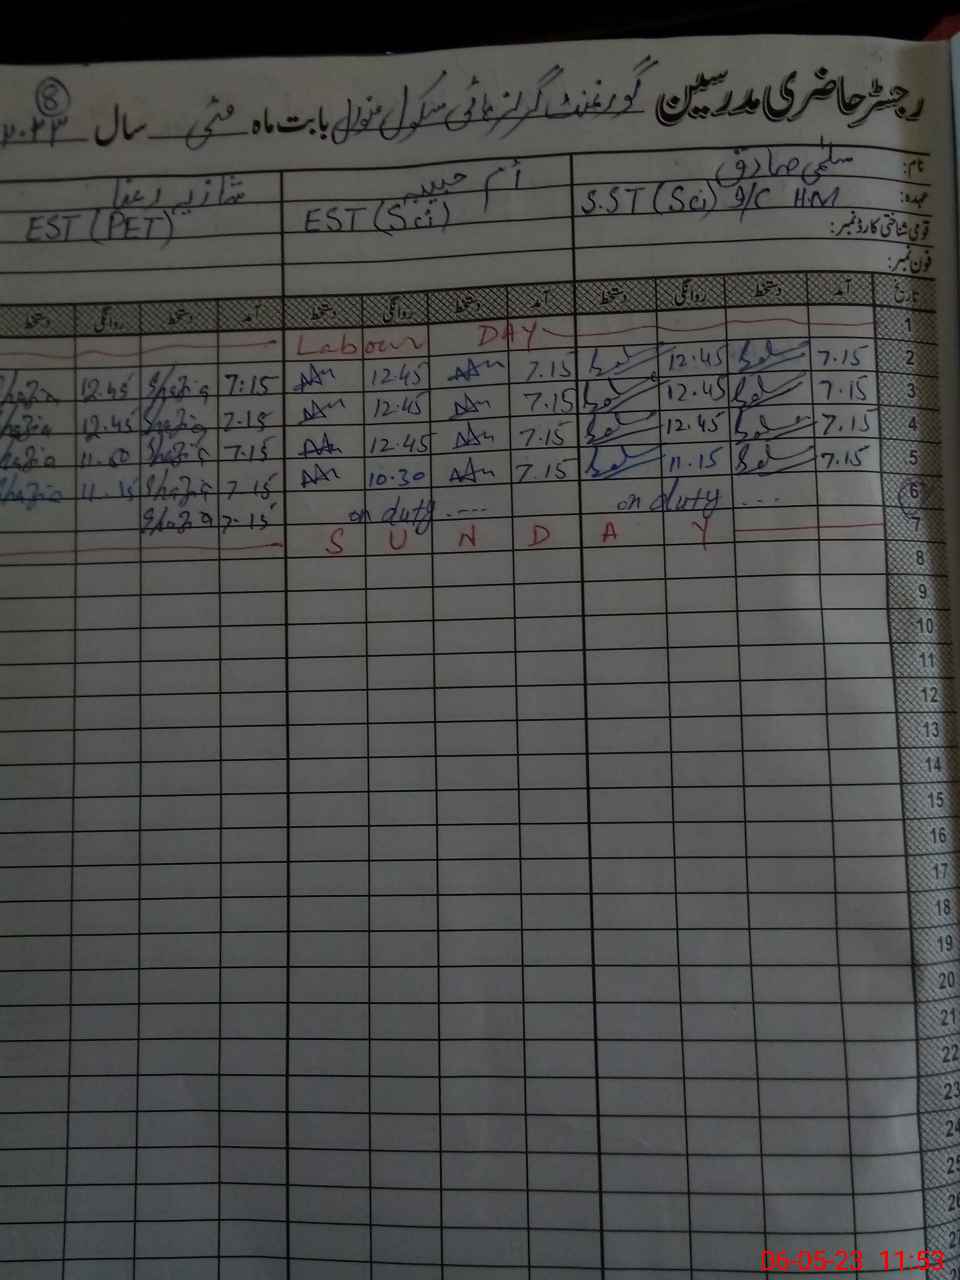 رجسٹر حاضری مدرسین گورنمنٹ گرلز ہائی سکول بابت ماہ مئی سال ۲۰۲۳
8
نام: سلمیٰ صادق أم حبیبہ شازیہ رعنا
عہدہ: S.ST (Sci) I/C H.M EST (Sci) EST (PET)
قومی شناختی کارڈ نمبر:
فون نمبر:
تاریخ آمد دستخط روانگی دستخط آمد دستخط روانگی دستخط آمد دستخط روانگی دستخط
1 Labour DAY
2 7.15 12.45 7.15 12.45 7:15 Shazia 12.45 Shazia
3 7.15 12.45 7.15 12.45 7.15 Shazia 12.45 Shazia
4 7.15 12.45 7.15 12.45 7.15 Shazia Shazia
5 7.15 11.15 7.15 10.30 7.15 Shazia 11.15 Shazia
6 on duty .... on duty .... 7.15 Shazia
7 S U N D A Y
8
9
10
11
12
13
14
15
16
17
18
19
20
21
22
23
24
25
26
06-05-23 11:53